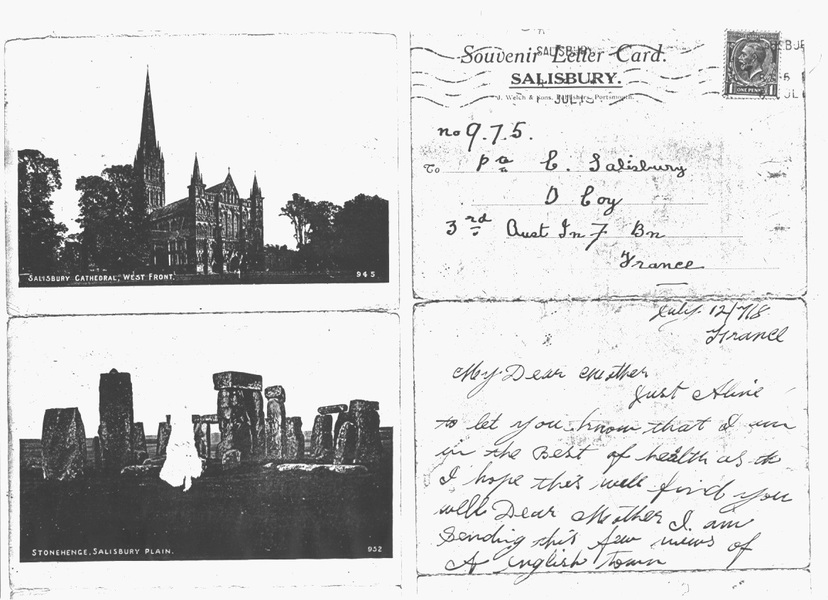 SALISBURY CATHEDRAL, WEST FRONT.
945
STONEHENGE, SALISBURY PLAIN.
952
Souvenir Letter Card.
SALISBURY.
SALISBURY
J. Welch & Sons, Publishers, Portsmouth.
JUL
ONE PENNY
No 975.
To Pte C. Salisbury
D Coy
3rd Aust Inf Bn
France
July 12/7/18
France
My Dear Mother
Just A line
to let you know that I am
in the Best of health as
I hope this will find you
well Dear Mother I am
Sending this few views of
A English town